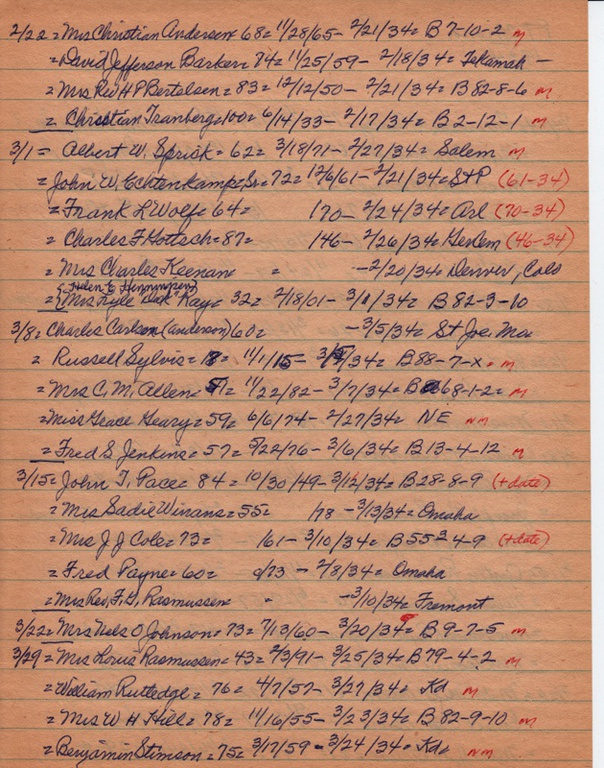 2/22 = Mrs Christian Andersen = 68 = 11/28/65 - 2/21/34 = B 7-10-2 m
= David Jefferson Barker = 74 = 11/25/59 - 2/18/34 = Tekamah -
= Mrs Rev H P Bertelsen = 83 = 12/12/50 - 2/21/34 = B 82-8-6 m
= Christian Tranberg = 100 = 6/14/33 - 2/17/34 = B 2-12-1 m
3/1 = Albert W. Sprick = 62 = 3/18/71 - 2/27/34 = Salem m
= John W Echtenkamp Sr = 72 = 12/6/61 - 2/21/34 = St P (61-34)
= Frank L Wolf = 64 = 170 - 2/24/34 = Arl (70-34)
= Charles F Gottsch = 87 = 146 - 2/26/34 = GerCem (46-34)
= Mrs Charles Keenan = = - 2/20/34 = Denver, Colo
(Helen E Henningsen)
= Mrs Lyle "Oak" Kay = 32 = 2/18/01 - 3/1/34 = B 82-3-10
3/8 = Charles Carlson (Anderson) 60 = - 3/5/34 = St Joe, Mo
= Russell Sylvis = 18 = 11/1/15 - 3/5/34 = B 88-7-x m
= Mrs C. M. Allen = 51 = 11/22/82 - 3/7/34 = B 68-1-2 = m
= Miss Grace Geary = 59 = 6/6/74 - 2/27/34 = NE nm
= Fred S Jenkins = 57 = 5/22/76 - 3/6/34 = B 13-4-12 m
3/15 = John T, Pace = 84 = 10/30/49 - 3/12/34 = B 28-8-9 (+date)
= Mrs Sadie Winans = 55 = 178 - 3/13/34 = Omaha
= Mrs J J Cole = 73 = 161 - 3/10/34 = B 55 4-9 (+date)
= Fred Payne = 60 = c/73 - 2/8/34 = Omaha
= Mrs Rev, F, D, Rasmussen = = - 3/10/34 = Fremont
3/22 = Mrs Nels O Johnson = 73 = 7/13/60 - 3/20/34 = B 9-7-5 m
3/29 = Mrs Louis Rasmussen = 43 = 2/3/91 - 3/25/34 = B 79-4-2 m
= William Rutledge = 76 = 4/7/57 - 3/27/34 = Kd m
= Mrs W H Hill = 78 = 11/16/55 - 3/23/34 = B 82-9-10 m
= Benjamin Stimson = 75 = 3/17/59 - 3/24/34 = Kd = nm